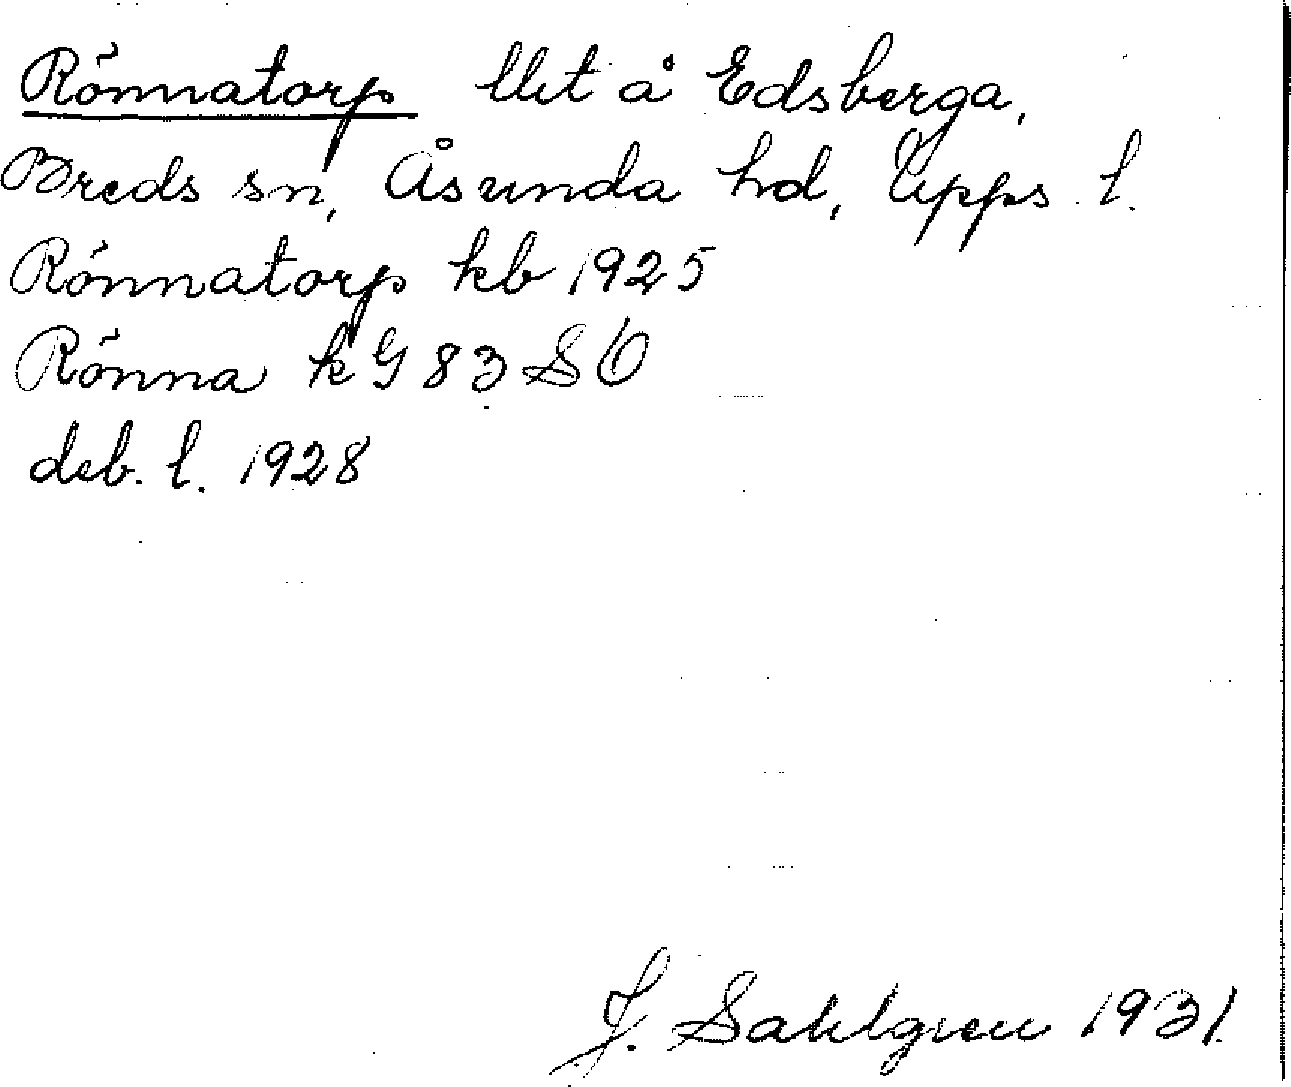 Rönnatorp lht å Edsberga,
Breds sn, Åsunda hd, Upps. l.
Rönnatorp kb 1925
Rönna kG 83 SÖ
deb. l. 1928
J. Sahlgren 1931